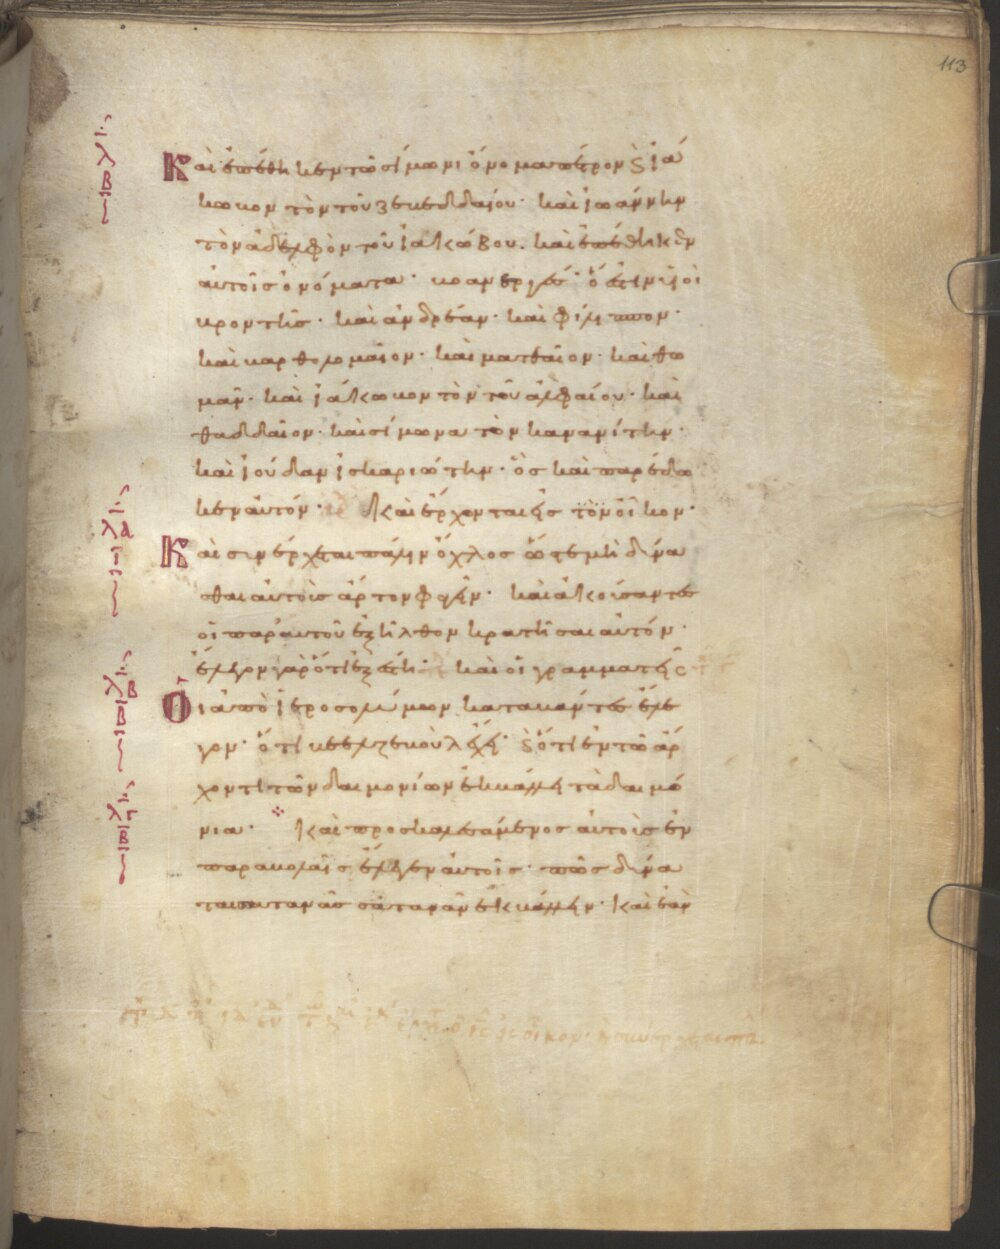 113
Καὶ ἐπέθηκεν τῶ σίμωνι ὄνομα πέτρον ϗ ἰά
κωβον τὸν τοῦ ζεβεδδαίου· καὶ ἰωάννην
τὸν ἀδελφὸν τοῦ ἰακώβου. καὶ ἐπέθηκεν
αὐτοῖς ὀνόματα· βοανεργές· ὅ ἐστιν υἱοὶ
βροντῆς· καὶ ἀνδρέαν· καὶ φίλιππον·
καὶ βαρθολομαῖον· καὶ ματθαῖον· καὶ θω
μᾶν· καὶ ἰάκωβον τὸν τοῦ ἀλφαίου· καὶ
θαδδαῖον· καὶ σίμωνα τὸν κανανίτην·
καὶ ἰούδαν ἰσκαριώτην· ὃς καὶ παρέδω
κεν αὐτόν· Καὶ ἔρχονται εἰς τὸν οἶκον·
λα
Καὶ συνέρχεται πάλιν ὄχλος ὥστε μὴ δύνα
σθαι αὐτοὺς ἄρτον φαγεῖν· καὶ ἀκούσαντες
οἱ παρ' αὐτοῦ ἐξῆλθον κρατῆσαι αὐτόν·
ἔλεγον γὰρ ὅτι ἐξέστη· καὶ οἱ γραμματεῖς
λβ
οἱ ἀπὸ ἱεροσολύμων καταβάντες ἔλε
γον· ὅτι βεελζεβοὺλ ἔχει· ϗ ὅτι ἐν τῶ ἄρ
χοντι τῶν δαιμονίων ἐκβάλλει τὰ δαιμό
λγ
νια· Καὶ προσκαλεσάμενος αὐτοὺς ἐν
παραβολαῖς ἔλεγεν αὐτοῖς· πῶς δύνα
ται σατανᾶς σατανᾶν ἐκβάλλειν· Καὶ ἐὰν